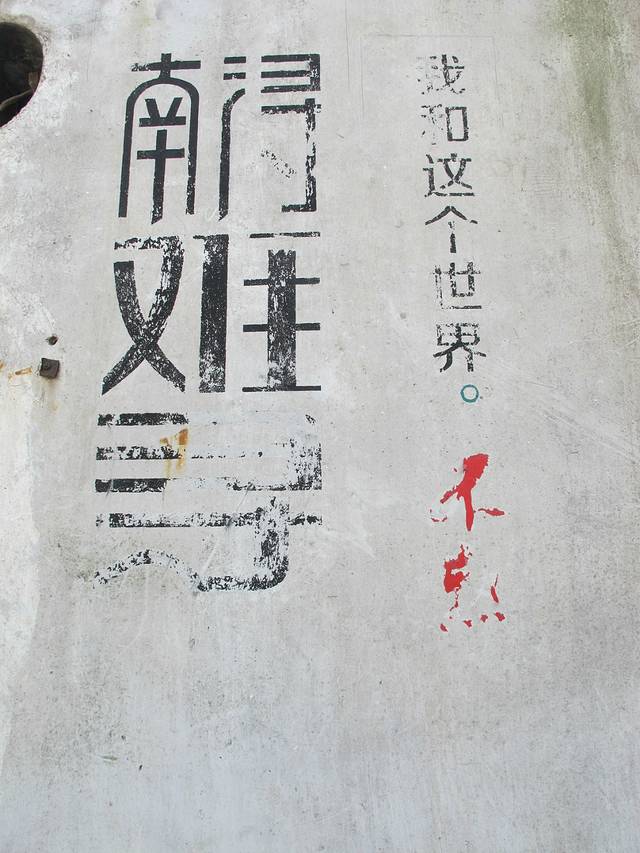 南浔
难
寻
我和这个世界。不熟